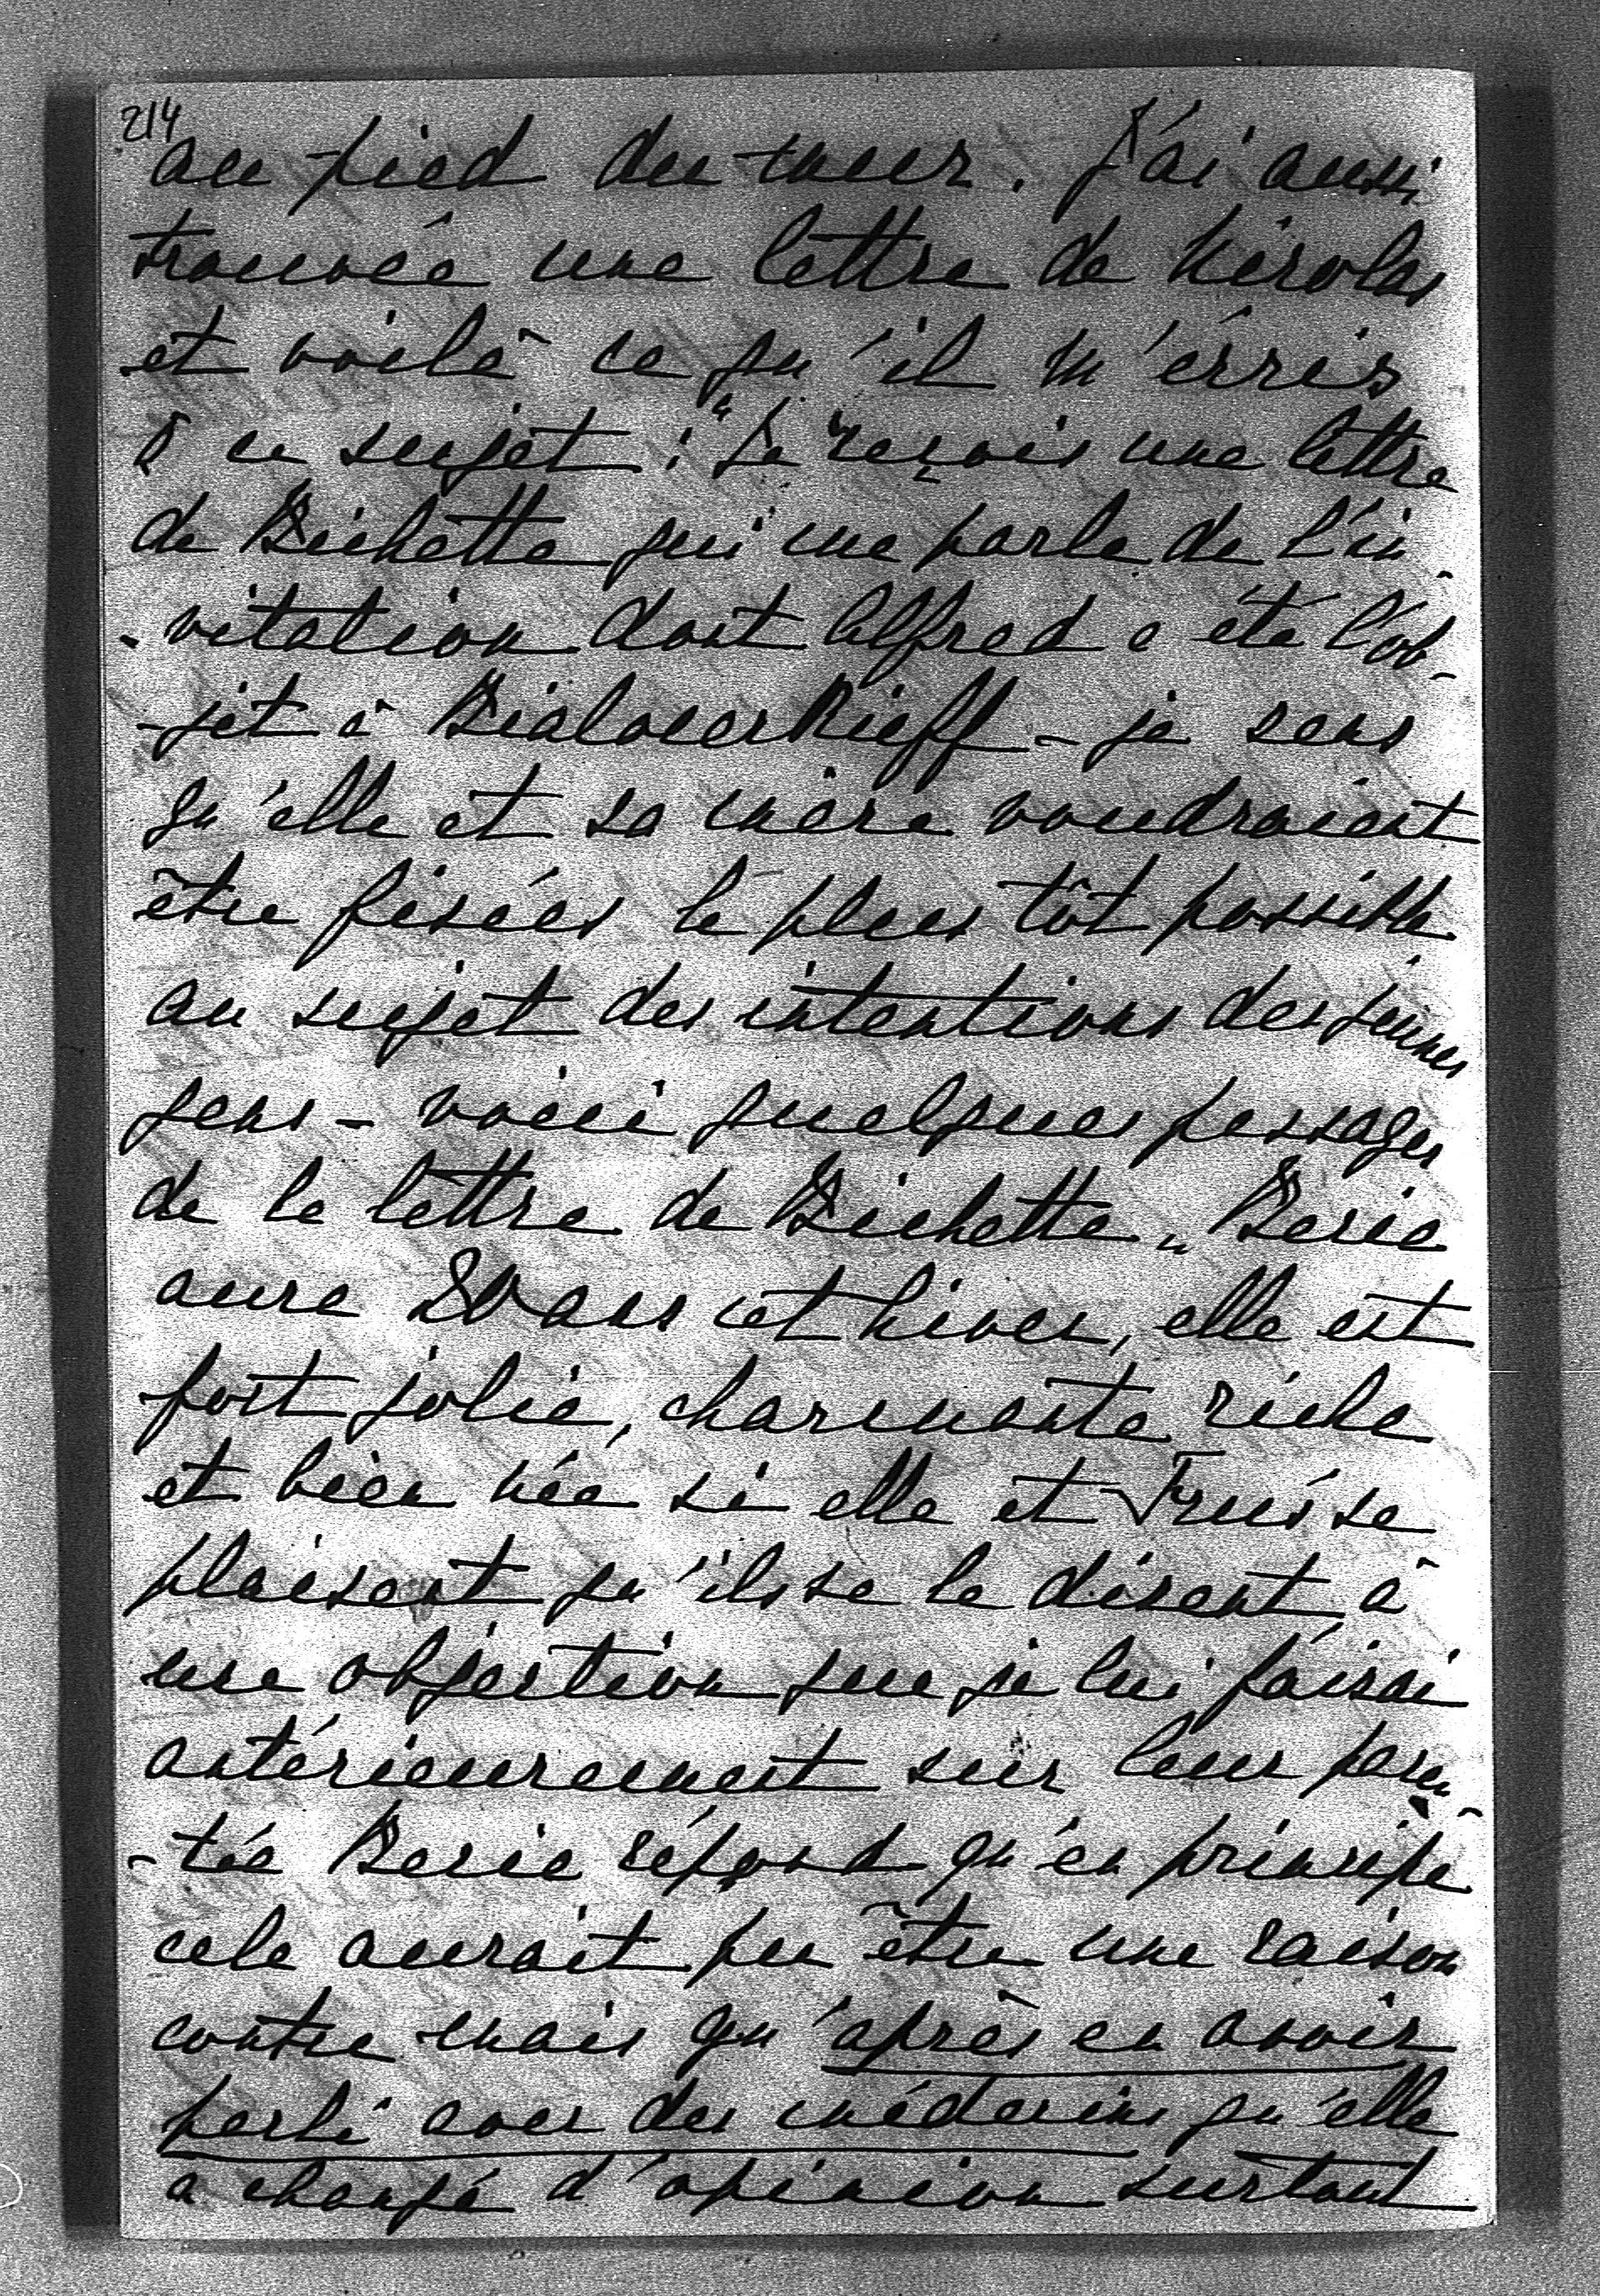 214
au pied du mur. J'ai aussi
trouvée une lettre de Nicolas
et voilà ce qu'il m'écris
à ce sujet : "Je reçois une lettre
de Bichette qui me parle de l'in-
-vitation dont Alfred a été l'ob-
-jet à Bialocerkieff - je sens
qu'elle et sa mère voudraient
être fixées le plus tôt possible
au sujet des intentions des jeunes
gens - voici quelques passages
de la lettre de Bichette „ Berie
aura 20 ans cet hiver, elle est
fort jolie, charmante riche
et bien née si elle et se
plaisent qu'ils se le disent à
une objection que je lui faisai
antérieurement sur leur paren-
-tée Berie répond qu'en principe
cela aurait pu être une raison
contre mais qu'après en avoir
parlé avec des médecins qu'elle
a changé d'opinion surtout